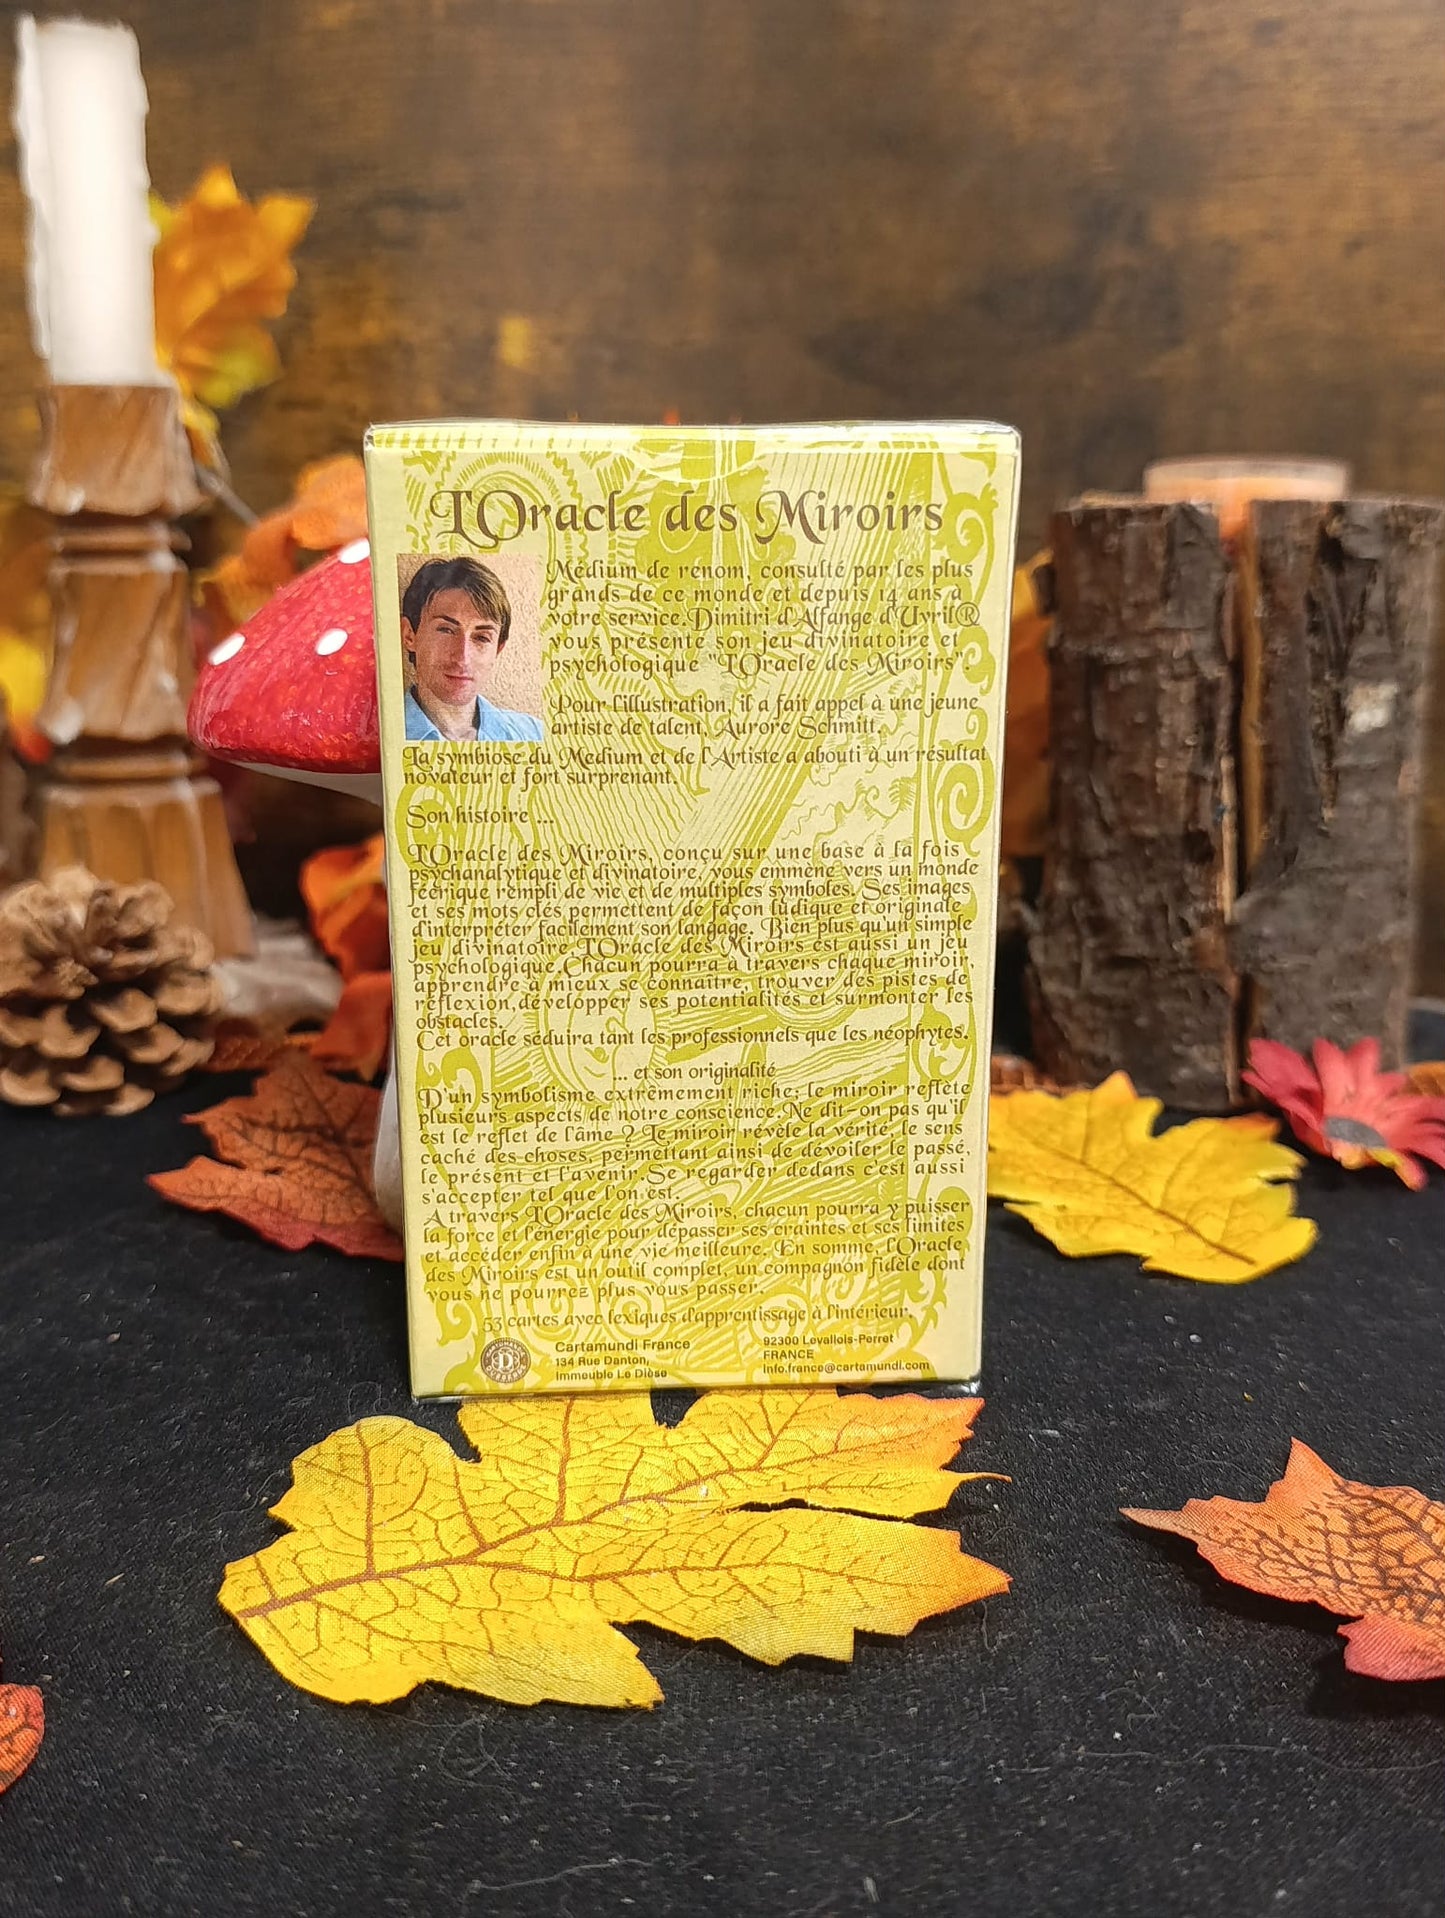 L'Oracle des Miroirs
Médium de renom, consulté par les plus
grands de ce monde et depuis 14 ans à
votre service.Dimitri d'Alfange d'Uvril®
vous présente son jeu divinatoire et
psychologique "L'Oracle des Miroirs".
Pour l'illustration, il a fait appel à une jeune
artiste de talent, Aurore Schmitt.
La symbiose du Medium et de l'Artiste a abouti à un résultat
novateur et fort surprenant.
Son histoire ...
L'Oracle des Miroirs, conçu sur une base à la fois
psychanalytique et divinatoire, vous emmène vers un monde
féerique rempli de vie et de multiples symboles. Ses images
et ses mots clés permettent de façon ludique et originale
d'interpréter facilement son langage. Bien plus qu'un simple
jeu divinatoire L'Oracle des Miroirs est aussi un jeu
psychologique.Chacun pourra à travers chaque miroir,
apprendre à mieux se connaître, trouver des pistes de
réflexion,développer ses potentialités et surmonter les
obstacles.
Cet oracle séduira tant les professionnels que les néophytes.
... et son originalité
D'un symbolisme extrêmement riche; le miroir reflète
plusieurs aspects de notre conscience.Ne dit-on pas qu'il
est le reflet de l'âme ? Le miroir révèle la vérité, le sens
caché des choses, permettant ainsi de dévoiler le passé,
le présent et l'avenir.Se regarder dedans c'est aussi
s'accepter tel que l'on est.
A travers L'Oracle des Miroirs, chacun pourra y puiser
la force et l'énergie pour dépasser ses craintes et ses limites
et accéder enfin à une vie meilleure. En somme, l'Oracle
des Miroirs est un outil complet, un compagnon fidèle dont
vous ne pourrez plus vous passer.
53 cartes avec lexiques d'apprentissage à l'intérieur.
Cartamundi France
134 Rue Danton,
Immeuble Le Dièse
92300 Levallois-Perret
FRANCE
info.france@cartamundi.com